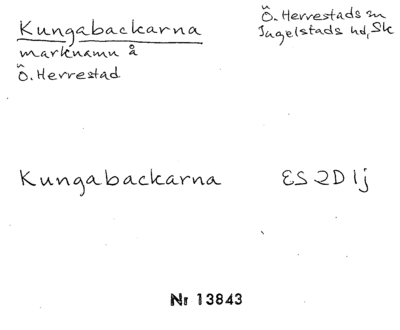 Kungabackarna
marknamn å
Ö. Herrestad
Ö. Herrestads sn
Ingelstads hd, Sk
Kungabackarna ES 2D 1j
Nr 13843